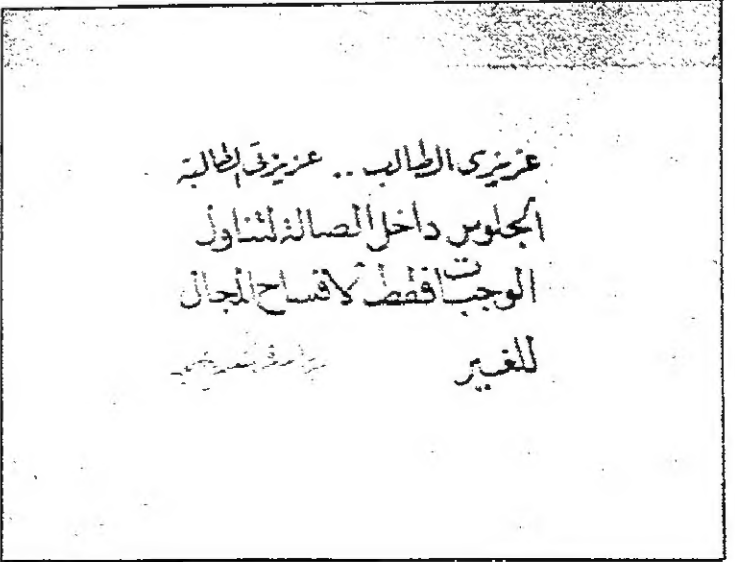 عزيزى الطالب .. عزيزتى الطالبة
الجلوس داخل الصالة لتناول
الوجبات فقط لافساح المجال
للغير